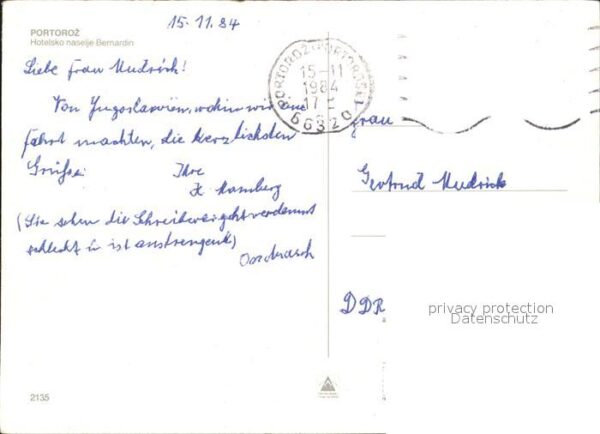 15.11.84
PORTOROŽ
Hotelsko naselje Bernardin
Liebe Frau Mudrick!
Von Jugoslawien, wohin wir eine
Fahrt machten, die herzlichsten
Grüsse Ihre
(Sie sehen die Schreiberei geht verdammt
schlecht u ist anstrengend)
PORTOROŽ-PORTOROSE
15-11
1984
17
66320
Frau
Gertrud Mudrick
DDR
privacy protection
Datenschutz
2135